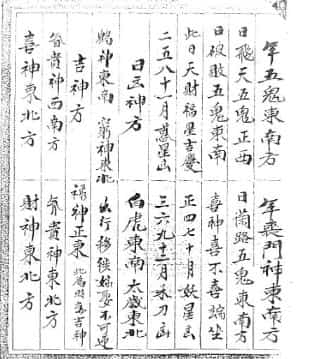 年五鬼東南方
日飛天五鬼正西
日破敗五鬼東南
此日天財福星吉慶
二五八十一月惑星山
日凶神方
鶴神東南 窮神東北
吉神方
貴神西南方
喜神東北方
年喪門神東南方
日蘭路五鬼東南方
喜神喜不喜端坐
正四七十月妖星山
三六九十二月禾刀山
白虎東南 太歲東北
出行移徙 不可迎
祿神正東 此為明為吉神
貴神東北方
財神東北方